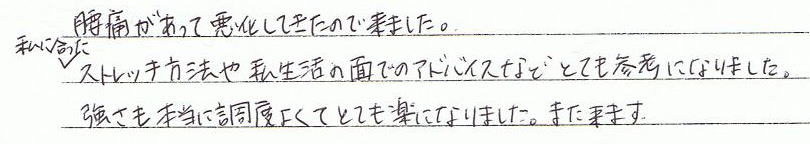 腰痛があって悪化してきたので来ました。
私に合った
ストレッチ方法や私生活の面でのアドバイスなどとても参考になりました。
強さも本当に調度よくてとても楽になりました。また来ます